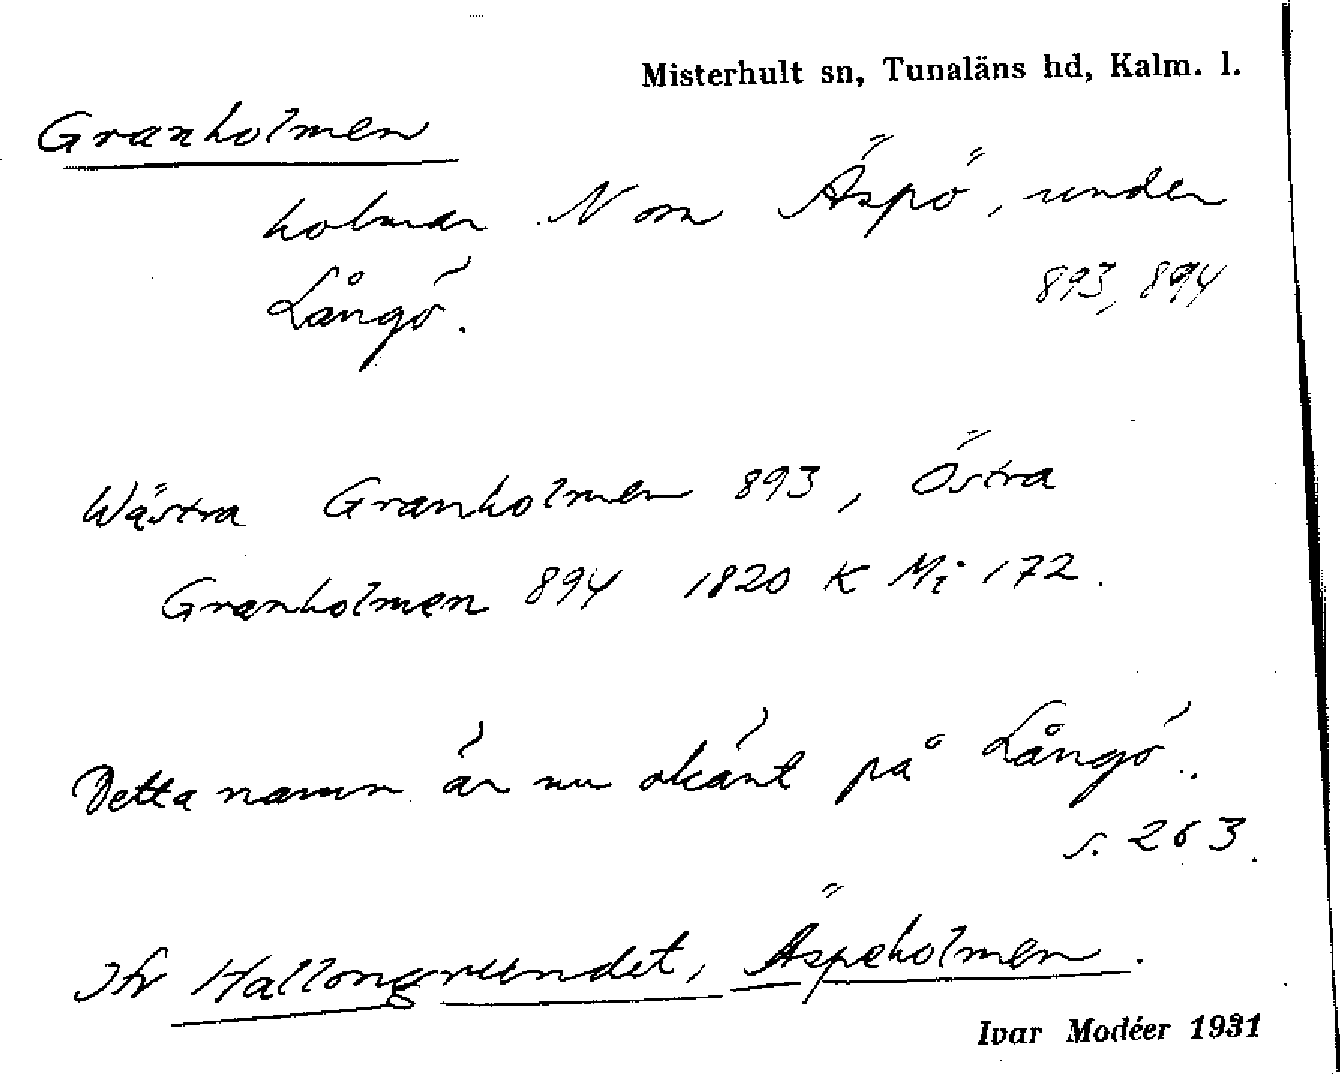 Misterhult sn, Tunaläns hd, Kalm. l.
Granholmen
holmar N om Äspö, under
Långö. 893, 894
Wästra Granholmen 893, Östra
Granholmen 894 1820 K Mi 172.
Detta namn är nu okänt på Långö.
s. 263.
Jfr Hallongrundet, Äspeholmen.
Ivar Modéer 1931